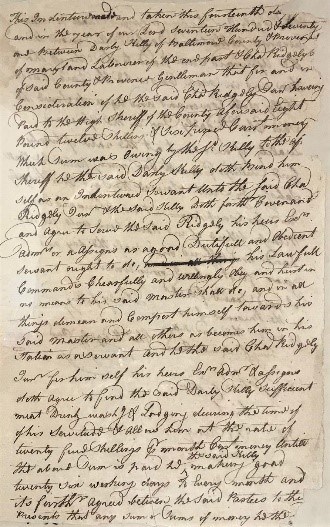 This Indenture made and taken this fourteenth da
and in the year of our Lord Seventeen Hundred & Seventy
one Between Darby Kelly of Baltimore County & Province
of Maryland Labourer of the one part & Chas Ridgely
of Said County & Province Gentleman that for and in
Consideration of he the Said Chas Ridgely Junr having
Paid to the High Sheriff of the County aforesaid Eight
Pound twelve Shillings & Six pence Curt money
Which Sum was Owing by the Sd Kelly to the Sd
Sheriff he the Said Darby Kelly doth bind him
self as an Indentured Servant Unto the Said Chas
Ridgely Junr & the Said Kelly Doth forth Covenant
and Agree to Serve the Said Ridgely his heirs Exrs
Admrs or Assigns as a good Dutifull and Obedient
Servant ought to do, his Lawfull
Commands Chearfully and willingly Obey and hurt in
no means to his Said Master shall do, and in all
things demean and Comport himself towards his
Said Master and all others as becomes him in his
Station as a Servant And he the Said Chas Ridgely
Junr for him self his heirs Exrs Admrs & Assigns
doth Agree to find the Said Darby Kelly Sufficient
meat Drink wash & Lodging during the time of
his Servitude & Allow him at the rate of
twenty five Shillings month Curt money Untill
the above Sum is paid he the Said Kelly making good
twenty Six working days to Every month and
its forthr Agreed between the Said Parties to these
Presents that any Sum or Sums of money he the